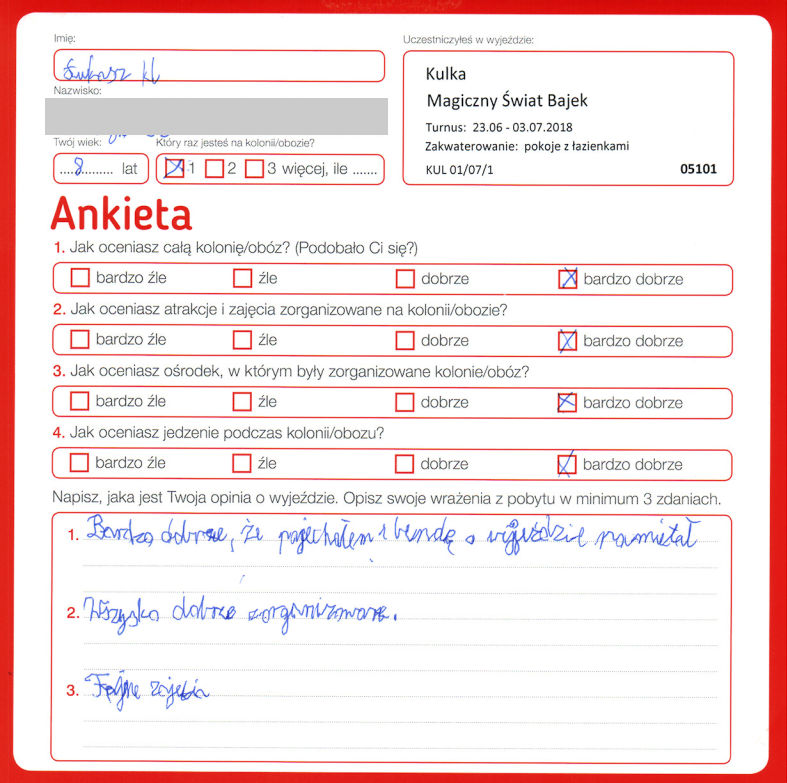 Imię:
Łukasz kl
Nazwisko:
Twój wiek:
....8......... lat
Który raz jesteś na kolonii/obozie?
1 2 3 więcej, ile .......
Uczestniczyłeś w wyjeździe:
Kulka
Magiczny Świat Bajek
Turnus: 23.06 - 03.07.2018
Zakwaterowanie: pokoje z łazienkami
KUL 01/07/1 05101
Ankieta
1. Jak oceniasz całą kolonię/obóz? (Podobało Ci się?)
bardzo źle źle dobrze bardzo dobrze
2. Jak oceniasz atrakcje i zajęcia zorganizowane na kolonii/obozie?
bardzo źle źle dobrze bardzo dobrze
3. Jak oceniasz ośrodek, w którym były zorganizowane kolonie/obóz?
bardzo źle źle dobrze bardzo dobrze
4. Jak oceniasz jedzenie podczas kolonii/obozu?
bardzo źle źle dobrze bardzo dobrze
Napisz, jaka jest Twoja opinia o wyjeździe. Opisz swoje wrażenia z pobytu w minimum 3 zdaniach.
1. Bardzo dobrze, że pojechałem i bendę o wyjeździe pamiętał
2. Wszysko dobrze zorganizowane.
3. Fajne zajęcia